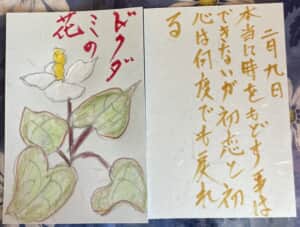 ドクダ
ミの
花
二月九日
本当に時をもどす事は
できないが初恋と初
心は何度でも戻れ
る